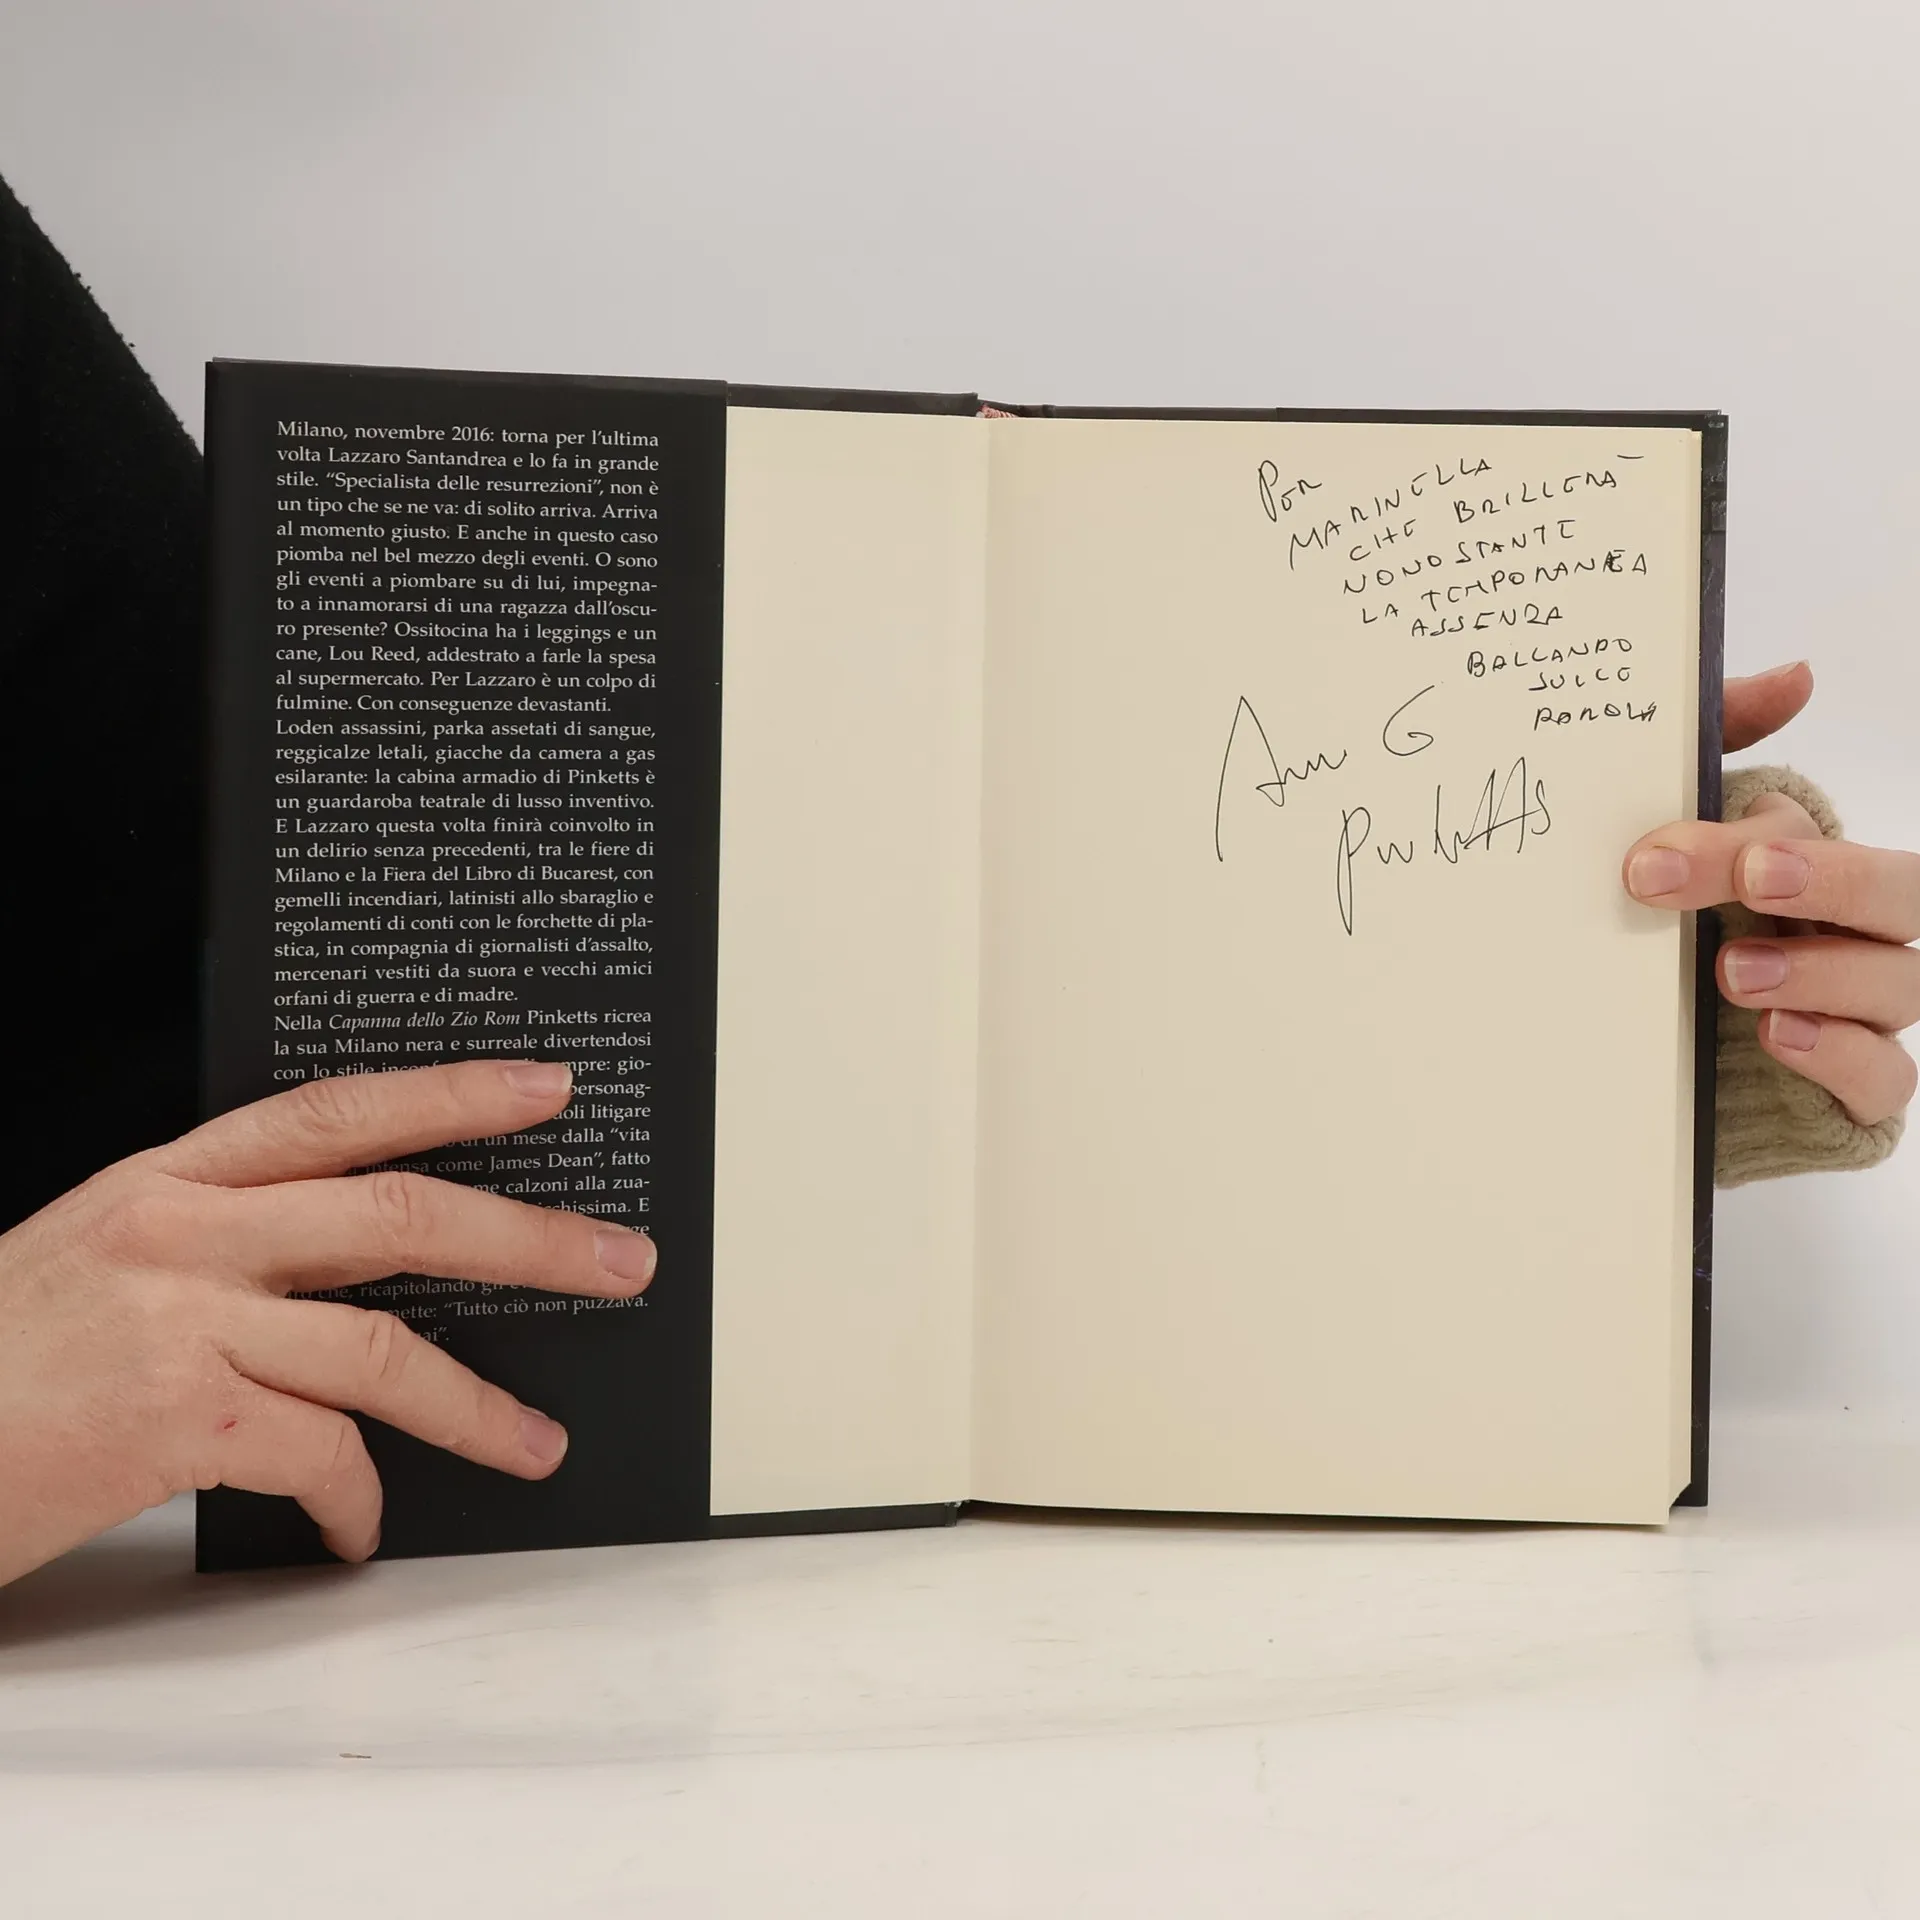 Milano, novembre 2016: torna per l'ultima
volta Lazzaro Santandrea e lo fa in grande
stile. "Specialista delle resurrezioni", non è
un tipo che se ne va: di solito arriva. Arriva
al momento giusto. E anche in questo caso
piomba nel bel mezzo degli eventi. O sono
gli eventi a piombare su di lui, impegna-
to a innamorarsi di una ragazza dall'oscu-
ro presente? Ossitocina ha i leggings e un
cane, Lou Reed, addestrato a farle la spesa
al supermercato. Per Lazzaro è un colpo di
fulmine. Con conseguenze devastanti.
Loden assassini, parka assetati di sangue,
reggicalze letali, giacche da camera a gas
esilarante: la cabina armadio di Pinketts è
un guardaroba teatrale di lusso inventivo.
E Lazzaro questa volta finirà coinvolto in
un delirio senza precedenti, tra le fiere di
Milano e la Fiera del Libro di Bucarest, con
gemelli incendiari, latinisti allo sbaraglio e
regolamenti di conti con le forchette di pla-
stica, in compagnia di giornalisti d'assalto,
mercenari vestiti da suora e vecchi amici
orfani di guerra e di madre.
Nella Capanna dello Zio Rom Pinketts ricrea
la sua Milano nera e surreale divertendosi
con lo stile gio-
personag-
litigare
di un mese dalla "vita
intensa come James Dean", fatto
calzoni alla zua-
E
che, ricapitolando
"Tutto ciò non puzzava.
PER
MARINELLA
CHE BRILLERÀ
NONOSTANTE
LA TEMPORANEA
ASSENZA
BALLANDO
SULLE
PAROLE
G
Pinketts